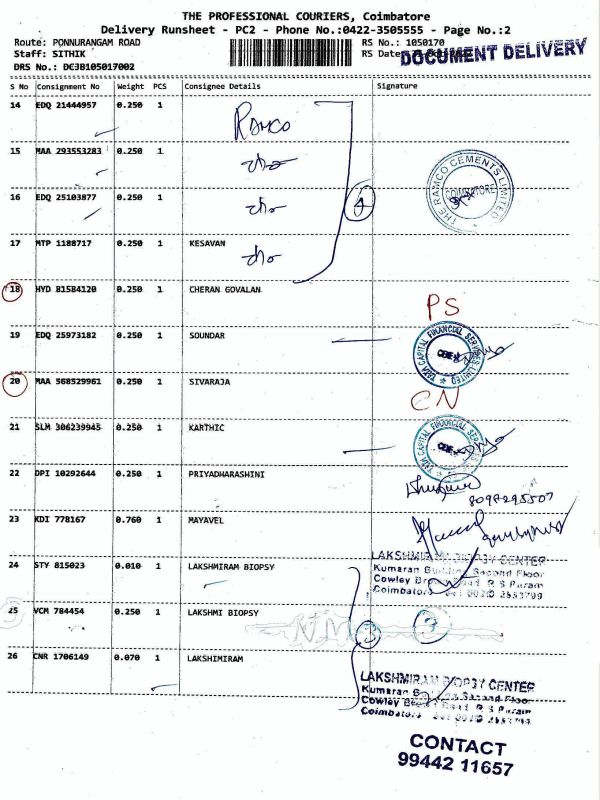 THE PROFESSIONAL COURIERS, Coimbatore
Delivery Runsheet - PC2 - Phone No.:0422-3505555 - Page No.:2
Route: PONNURANGAM ROAD
RS No.: 1050170
Staff: SITHIK
RS Date:
DOCUMENT DELIVERY
DRS No.: DCJB105017002
S No Consignment No Weight PCS Consignee Details Signature
14 EDQ 21444957 0.250 1 RAMCO
15 MAA 293553283 0.250 1
16 EDQ 25103877 0.250 1
THE RAMCO CEMENTS LIMITED
COIMBATORE
17 MTP 1188717 0.250 1 KESAVAN
18 HYD 81584120 0.250 1 CHERAN GOVALAN
PS
19 EDQ 25973182 0.250 1 SOUNDAR
TATA CAPITAL FINANCIAL SERVICES LIMITED
20 MAA 568529961 0.250 1 SIVARAJA
CN
21 SLM 306239945 0.250 1 KARTHIC
TATA CAPITAL FINANCIAL SERVICES LIMITED
22 DPI 10292644 0.250 1 PRIYADHARASHINI
23 KDI 778167 0.760 1 MAYAVEL
24 STY 815023 0.010 1 LAKSHMIRAM BIOPSY
LAKSHMIRAM BIOPSY CENTER
Kumaran Building Second Floor
Cowley Brown Road R S Puram
Coimbatore
25 VCM 784454 0.250 1 LAKSHMI BIOPSY
3
26 CNR 1706149 0.070 1 LAKSHIMIRAM
LAKSHMIRAM BIOPSY CENTER
Kumaran Second Floor
Cowley Road R S Puram
Coimbatore
CONTACT
99442 11657